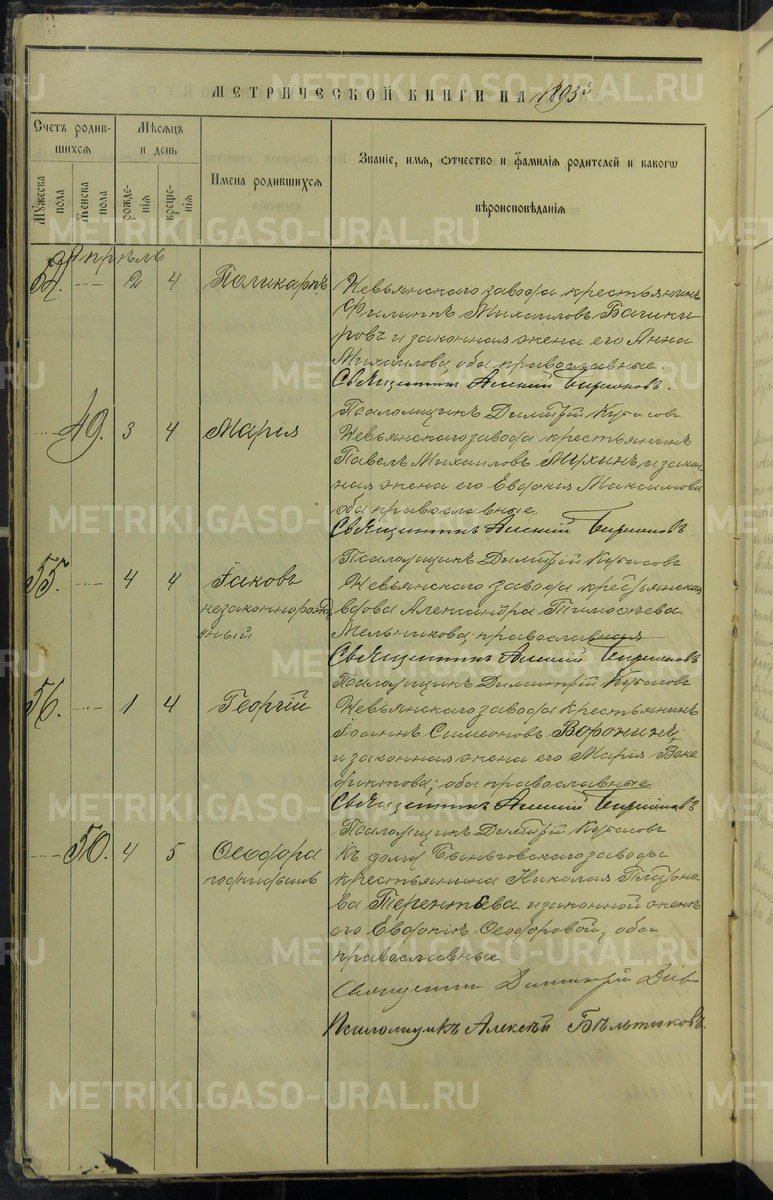 МЕТРИЧЕСКОЙ КНИГИ НА 1893й
Счетъ родившихся
Мѣсяцъ и день
Имена родившихся
Званіе, имя, отчество и фамилія родителей и какогѡ вѣроисповѣданія
Мужеска пола
Женска пола
рожденія
крещенія
Апрѣль
54. 2 4 Поликарпъ
Невьянскаго завода крестьянинъ
Филиппъ Михаиловъ Башки
ровъ и законная жена его Анна
Михаилова оба православные.
Священникъ Алексій Бирюковъ.
Псаломщикъ Димитрій Кутасовъ
49. 3 4 Марія
Невьянскаго завода крестьянинъ
Павелъ Михаиловъ Мухинъ и закон
ная жена его Евдокія Максимова
оба православные.
Священникъ Алексій Бирюковъ
Псаломщикъ Димитрій Кутасовъ
55. 4 4 Іаковъ
незаконнорожд
нный
Невьянскаго завода крестьянская
вдова Александра Тимофеева
Мельникова православная
Священникъ Алексій Бирюковъ
Псаломщикъ Димитрій Кутасовъ
56. 1 4 Георгій
Невьянскаго завода крестьянинъ
Іоаннъ Симеоновъ Воронинъ
и законная жена его Марія Вене
диктова; оба православные
Священникъ Алексій Бирюковъ
Псаломщикъ Димитрій Кутасовъ
50. 4 5 Ѳеодора
Къ долгу Быньговскаго завода
крестьянина Николая Плато
ва Терентьева и законной жены
его Евдокіи Ѳеодоровой, оба
православные
Священникъ Димитрій
Псаломщикъ Алексѣй Бѣльтюковъ.
METRIKI.GASO-URAL.RU